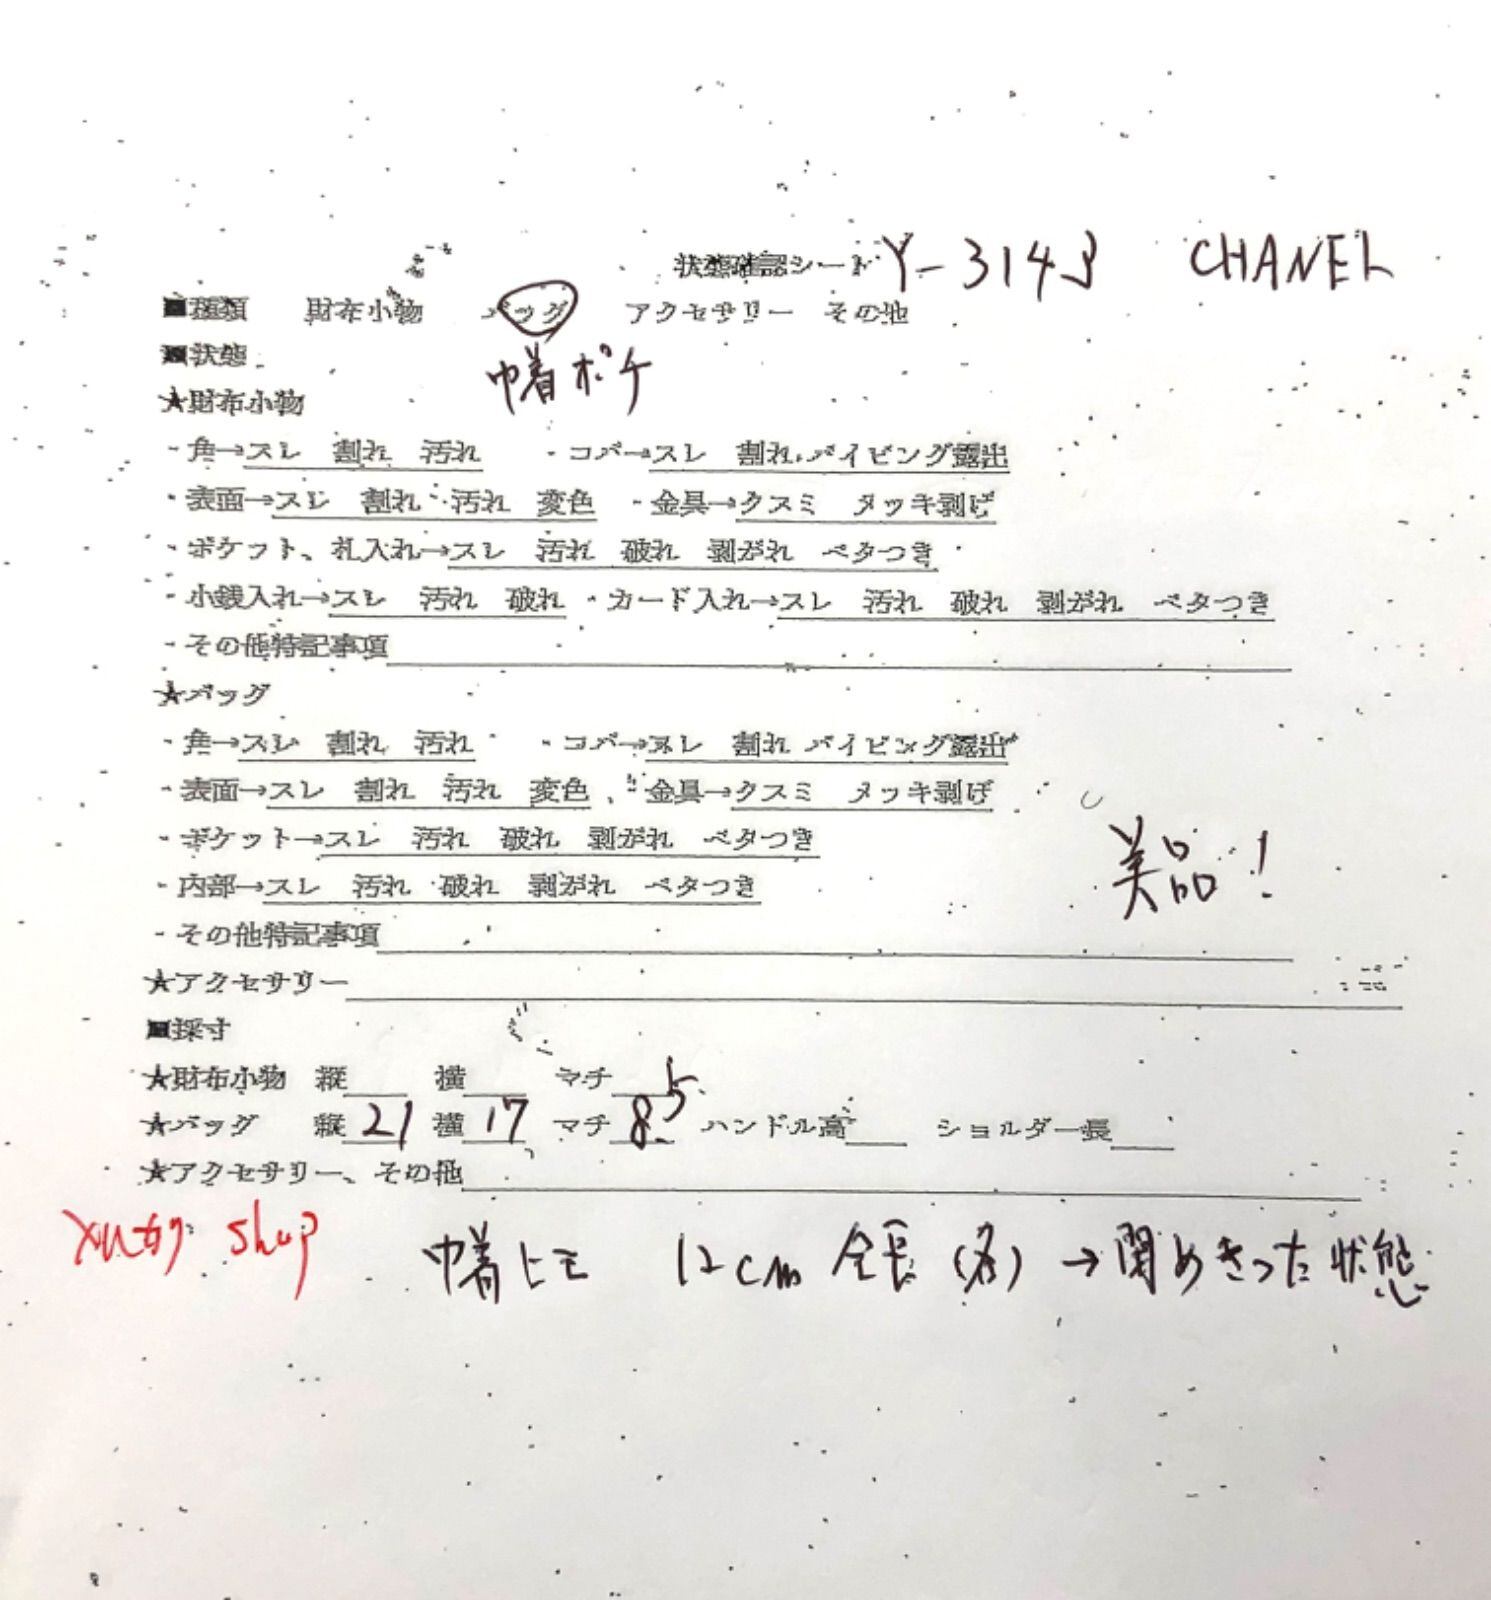 状態確認シート Y-314 CHANEL
■種類 財布小物 バッグ アクセサリー その他
■状態
巾着ポチ
★財布小物
・角→スレ 割れ 汚れ ・コバ→スレ 割れ パイピング露出
・表面→スレ 割れ 汚れ 変色 ・金具→クスミ メッキ剥げ
・ポケット、札入れ→スレ 汚れ 破れ 剥がれ ベタつき
・小銭入れ→スレ 汚れ 破れ ・カード入れ→スレ 汚れ 破れ 剥がれ ベタつき
・その他特記事項
★バッグ
・角→スレ 割れ 汚れ ・コバ→スレ 割れ パイピング露出
・表面→スレ 割れ 汚れ 変色 ・金具→クスミ メッキ剥げ
・ポケット→スレ 汚れ 破れ 剥がれ ベタつき
・内部→スレ 汚れ 破れ 剥がれ ベタつき
美品!
・その他特記事項
★アクセサリー
■採寸
★財布小物 縦 横 マチ
★バッグ 縦 21 横 17 マチ 8.5 ハンドル高 ショルダー長
★アクセサリー、その他
メルカリ shop 巾着ヒモ 12cm 全長 →閉めきった状態